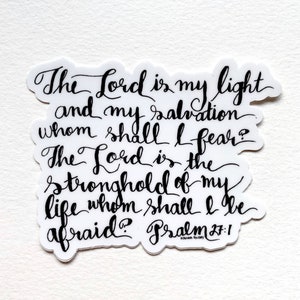 The Lord is my light
and my salvation
whom shall I fear?
The Lord is the
stronghold of my
life whom shall I be
afraid? Psalm 27:1